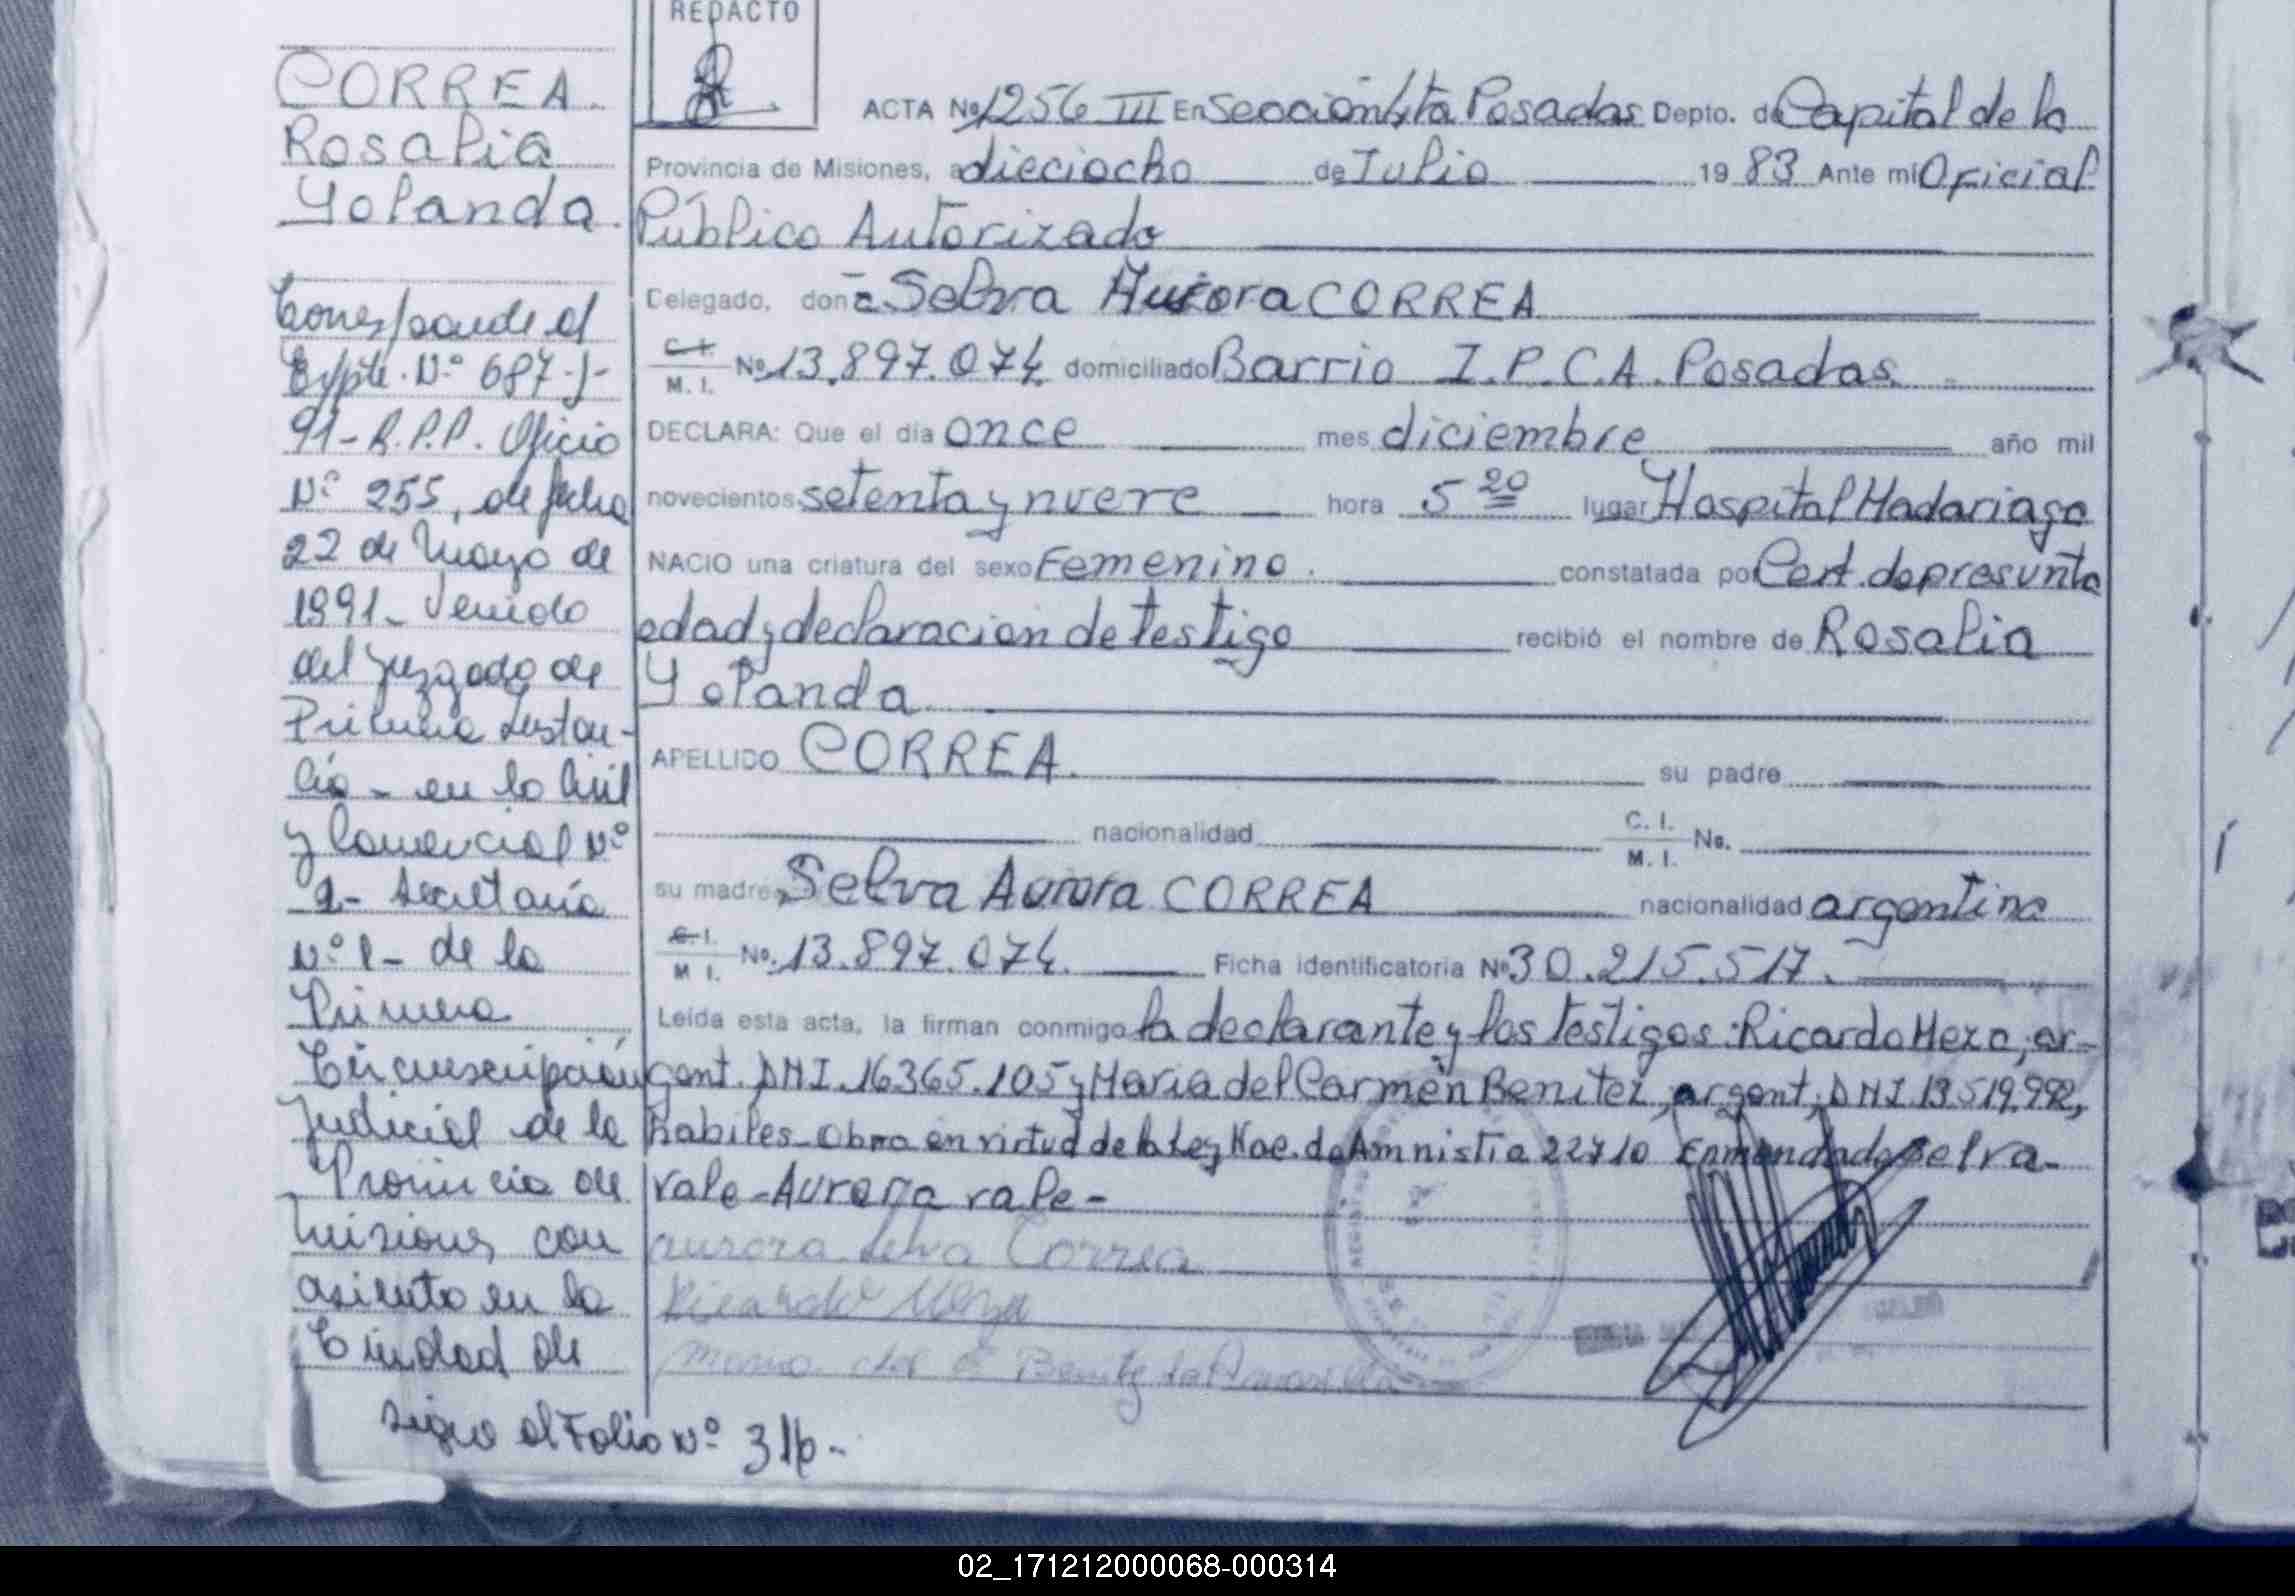 REDACTO
CORREA
Rosalia
Yolanda.
Corresponde al
Expte. Nº 687-J-
91- R.P.P. Oficio
Nº 255, de fecha
22 de Mayo de
1991- Venido
del Juzgado de
Primera Instan-
cia - en lo Civil
y Comercial Nº
2- Secretaría
Nº 1- de la
Primera
Circunscripción
Judicial de la
Provincia de
Misiones, con
asiento en la
Ciudad de
sigue al Folio Nº 316-
ACTA Nº 1256 III En Sección 4ta Posadas Depto. de Capital de la
Provincia de Misiones, a dieciocho de Julio 19 83 Ante mi Oficial
Público Autorizado
Delegado, don a Selva Aurora CORREA
C. I. M. I. Nº 13.897.074 domiciliado Barrio I.P.C.A. Posadas
DECLARA: Que el día once mes diciembre año mil
novecientos setenta y nueve hora 5 20 lugar Hospital Madariaga
NACIO una criatura del sexo Femenino. constatada por Cert. de presunta
edad y declaracion de testigo recibió el nombre de Rosalia
Yolanda
APELLIDO CORREA. su padre
nacionalidad C. I. M. I. No.
su madre Selva Aurora CORREA nacionalidad argentina
C. I. M. I. No. 13.897.074. Ficha identificatoria Nº 30.215.517.
Leída esta acta, la firman conmigo la declarante y los testigos: Ricardo Meza, ar-
gent. DNI. 16365.105 y Maria del Carmen Benitez, argent, DNI 13.519.992,
habiles- Obra en virtud de la Ley Nac. de Amnistia 22710 Enmendado Selva-
vale- Aurora vale-
aurora selva Correa
Ricardo Meza
Maria del C Benitez de
02_171212000068-000314